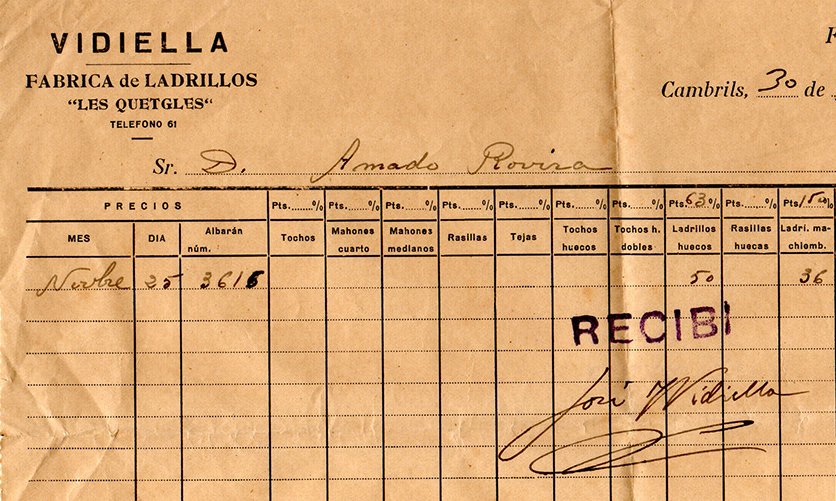 VIDIELLA
FABRICA de LADRILLOS
"LES QUETGLES"
TELEFONO 61
Cambrils, 30 de
Sr. D. Amado Rovira
PRECIOS Pts. % Pts. % Pts. % Pts. % Pts. % Pts. % Pts. % Pts. 63 % Pts. % Pts. 150 %
MES DIA Albarán núm. Tochos Mahones cuarto Mahones medianos Rasillas Tejas Tochos huecos Tochos h. dobles Ladrillos huecos Rasillas huecas Ladri. machiemb.
Novbre 25 3616 50 36
RECIBI
José Vidiella